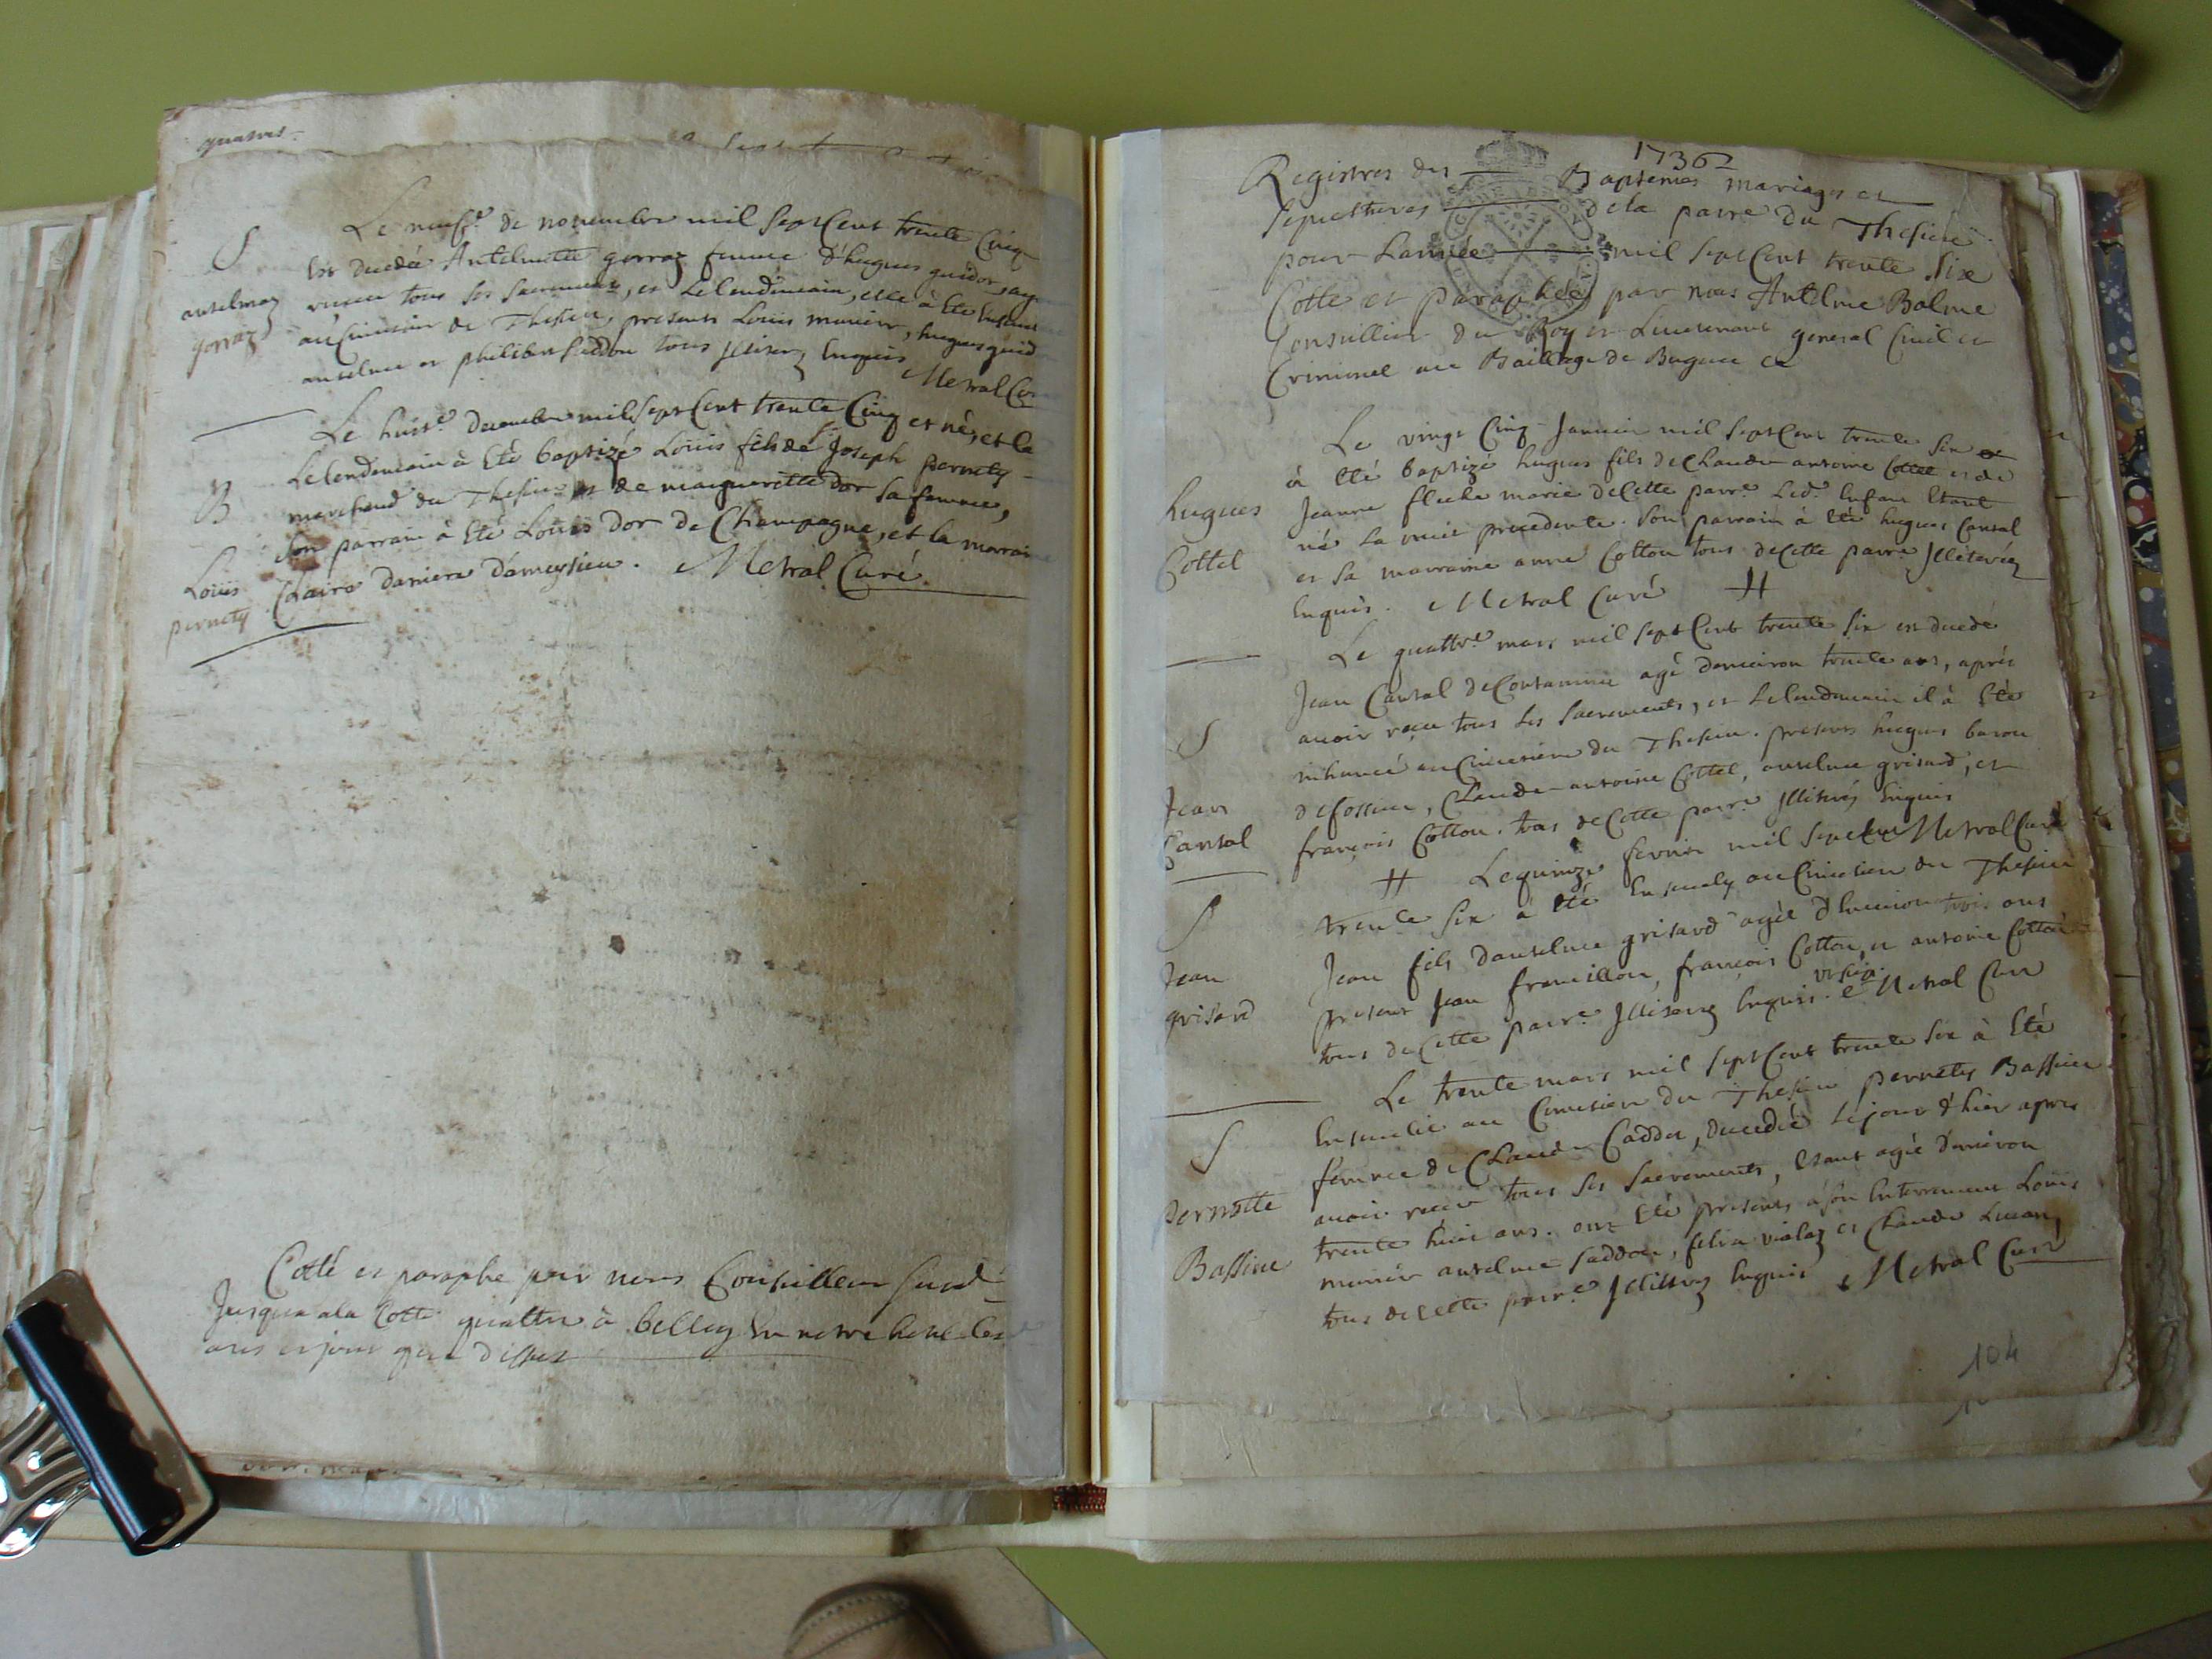 quatre
Le neufe de novembre mil Sept Cent trente Cinq
est decedée Antelmette gorraz femme d'hugues guidor, ay
receu tous ses Sacremens, et Lelendemain, elle à Eté
au Cimetiere de Thesieu, presents Louis munier, hugues guid
anselme et philibert saddou tous Illiterez Enquis Metral Cur
S
antelmaz
gorraz
Le huitte decembre mil Sept Cent trente Cinq est né, et le
Lelendemain à Eté baptizé Louis fils de Joseph pernety
marchand du Thesieu et de margueritte dor Sa femme,
Son parrain à Eté Louis Dor De Champagne, et la marrai
Claire daniere d'ameysieu. Metral Curé
B
Louis
pernety
Cotté et paraphe par nous Conseilleur susd
Jusqua ala Cotte quattre à belley En notre hotel les
ans et jour que dessus
1736
Registres des Baptemes mariages et
Sepultures de la parre du Thesieu
pour Lannée mil Sept Cent trente Six
Cotté et paraphée par nous Antelme Balme
Conseiller du Roy et Lieutenant general Civil et
Criminel au Baillage de Bugey
Le vingt Cinq Janvier mil Sept Cent trente Six
à Eté baptizé hugues fils de Claude antoine Cottel et de
Jeanne marie de Cette parre Led Enfant Etant
né La precedente. Son parrain à Eté hugues Cantal
et Sa marraine anne Cotton tous de Cette parre Illiterez
Enquis. Metral Curé #
hugues
Cottel
Le quattre mars mil Sept Cent trente Six est decedé
Jean Cantal de Contamine agé denviron trente ans, aprés
avoir receu tous Les Sacrements, et Lelendemain il à Eté
inhumé au Cimetiere du Thesieu. presents hugues baron
de fossieu, Claude antoine Cottel, anselme grisard, et
françois Cotton. tous de Cette parre Illiterés Enquis
Metral Curé
S
Jean
Cantal
# Le quinze fevrier mil Sept Cent
trente Six à Eté Ensevely au Cimetiere du Thesieu
Jean fils danselme grisard agée d'henviron trois ans
presents Jean francillon, françois Cotton, et antoine Cotton
tous de Cette parre Illiterez Enquis. Metral Curé
S
Jean
grisard
Le trente mars mil Sept Cent trente Six à Eté
Ensevelie au Cimetiere du Thesieu pernette Bassieu
femme de Claude Caddou, decedée le jour d'hier apres
avoir receu tous Ses Sacrements, Etant agée d'environ
trente huit ans. ont Eté presents à son Enterrement Louis
munier anselme Saddou, felix vialaz et Claude
tous de Cette parre Illiterez Enquis Metral Curé
S
Pernette
Bassieu
104